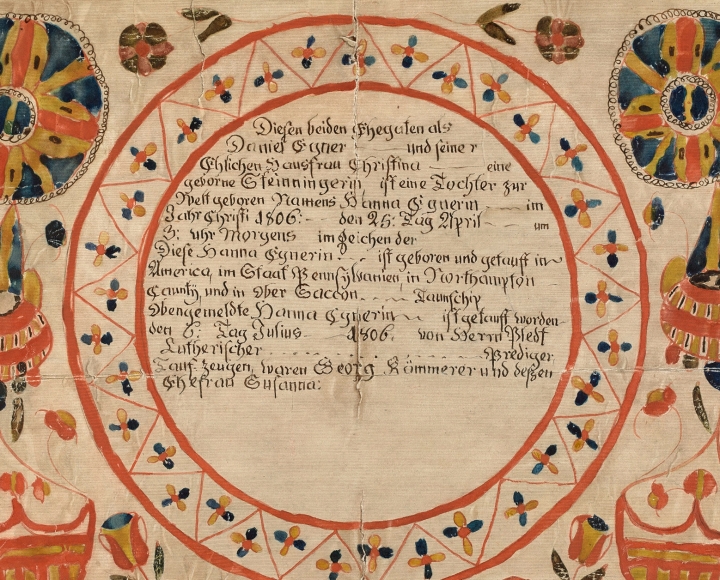 Diesen beiden Ehegaten als
Daniel Egner und seiner
Ehlichen Hausfrau Christina eine
geborne Steinningerin ist eine Tochter zur
Welt geboren Namens Hanna Egnerin im
Jahr Christi 1806. den 25. Tag April um
Uhr Morgens im Zeichen der
Diese Hanna Egnerin ist geboren und getauft in
America, im Staat Pennsylvanien, in Northampton
Caunty, und in Ober Saccon Taunschip
Obengemeldte Hanna Egnerin ist getauft worden
den Tag Julius 1806. von Herrn
Lutherischer Prediger
Tauf-Zeugen, waren Georg Kömmerer und deßen
Ehefrau Susanna: